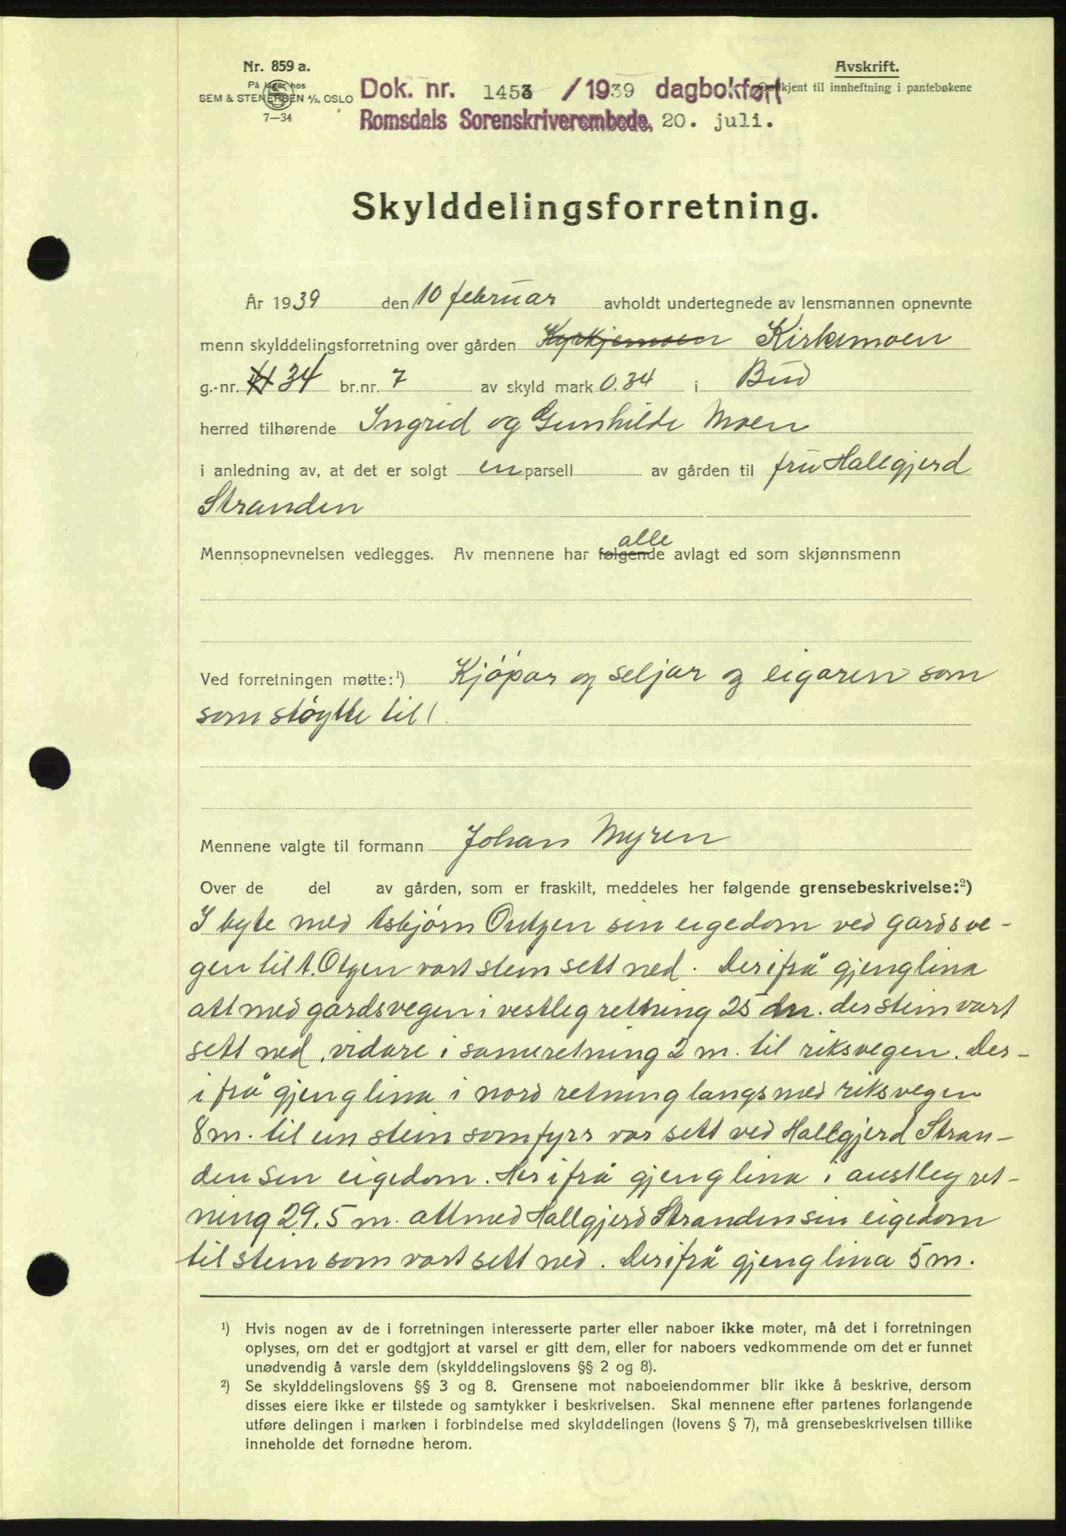 Nr. 859 a.
På lager hos
SEM & STENERSEN A/S, OSLO
7—34
Avskrift.
Godkjent til innheftning i pantebøkene
Dok. nr. 1453 /1939 dagbokført
Romsdals Sorenskriverembede, 20. juli.
Skylddelingsforretning.
År 1939 den 10 februar avholdt undertegnede av lensmannen opnevnte
menn skylddelingsforretning over gården Kyrkjemoen Kirkemoen
g.-nr. 34 br.nr. 7 av skyld mark 0.34 i Bud
herred tilhørende Ingrid og Gunhilde Moen
i anledning av, at det er solgt en parsell av gården til fru Hallgjerd
Stranden
alle
Mennsopnevnelsen vedlegges. Av mennene har følgende avlagt ed som skjønnsmenn
Ved forretningen møtte:¹) Kjøpar og seljar og eigaren som
som støytte til!
Mennene valgte til formann Johan Myren
Over de del av gården, som er fraskilt, meddeles her følgende grensebeskrivelse:²)
I byte med Asbjørn Outzen sin eigedom ved gardsve-
gen til A. Otzen vart stein sett ned. Derifrå gjeng lina
att med gardsvegen i vestleg retning 25 m. der stein vart
sett ned, vidare i same retning 2 m. til riksvegen. Der-
ifrå gjeng lina i nord retning langs med riksvegen
8 m. til ein stein som fyrr var sett ved Hallgjerd Stran-
den sin eigedom. Her ifrå gjeng lina i austleg ret-
ning 29.5 m. att med Hallgjerd Stranden sin eigedom
til stein som vart sett ned. Derifrå gjeng lina 5 m.
¹) Hvis nogen av de i forretningen interesserte parter eller naboer ikke møter, må det i forretningen
oplyses, om det er godtgjort at varsel er gitt dem, eller for naboers vedkommende om det er funnet
unødvendig å varsle dem (skylddelingslovens §§ 2 og 8).
²) Se skylddelingslovens §§ 3 og 8. Grensene mot naboeiendommer blir ikke å beskrive, dersom
disses eiere ikke er tilstede og samtykker i beskrivelsen. Skal mennene efter partenes forlangende
utføre delingen i marken i forbindelse med skylddelingen (lovens § 7), må grensebeskrivelsen tillike
inneholde det fornødne herom.